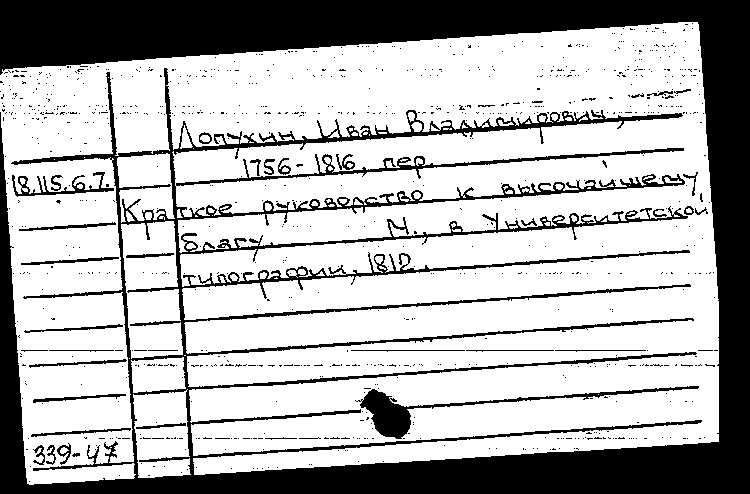 Лопухин, Иван Владимирович,
1756-1816, пер.
18.115.6.7.
Краткое руководство к высочайшему
благу. М., в Университетской
типографии, 1812.
339-47